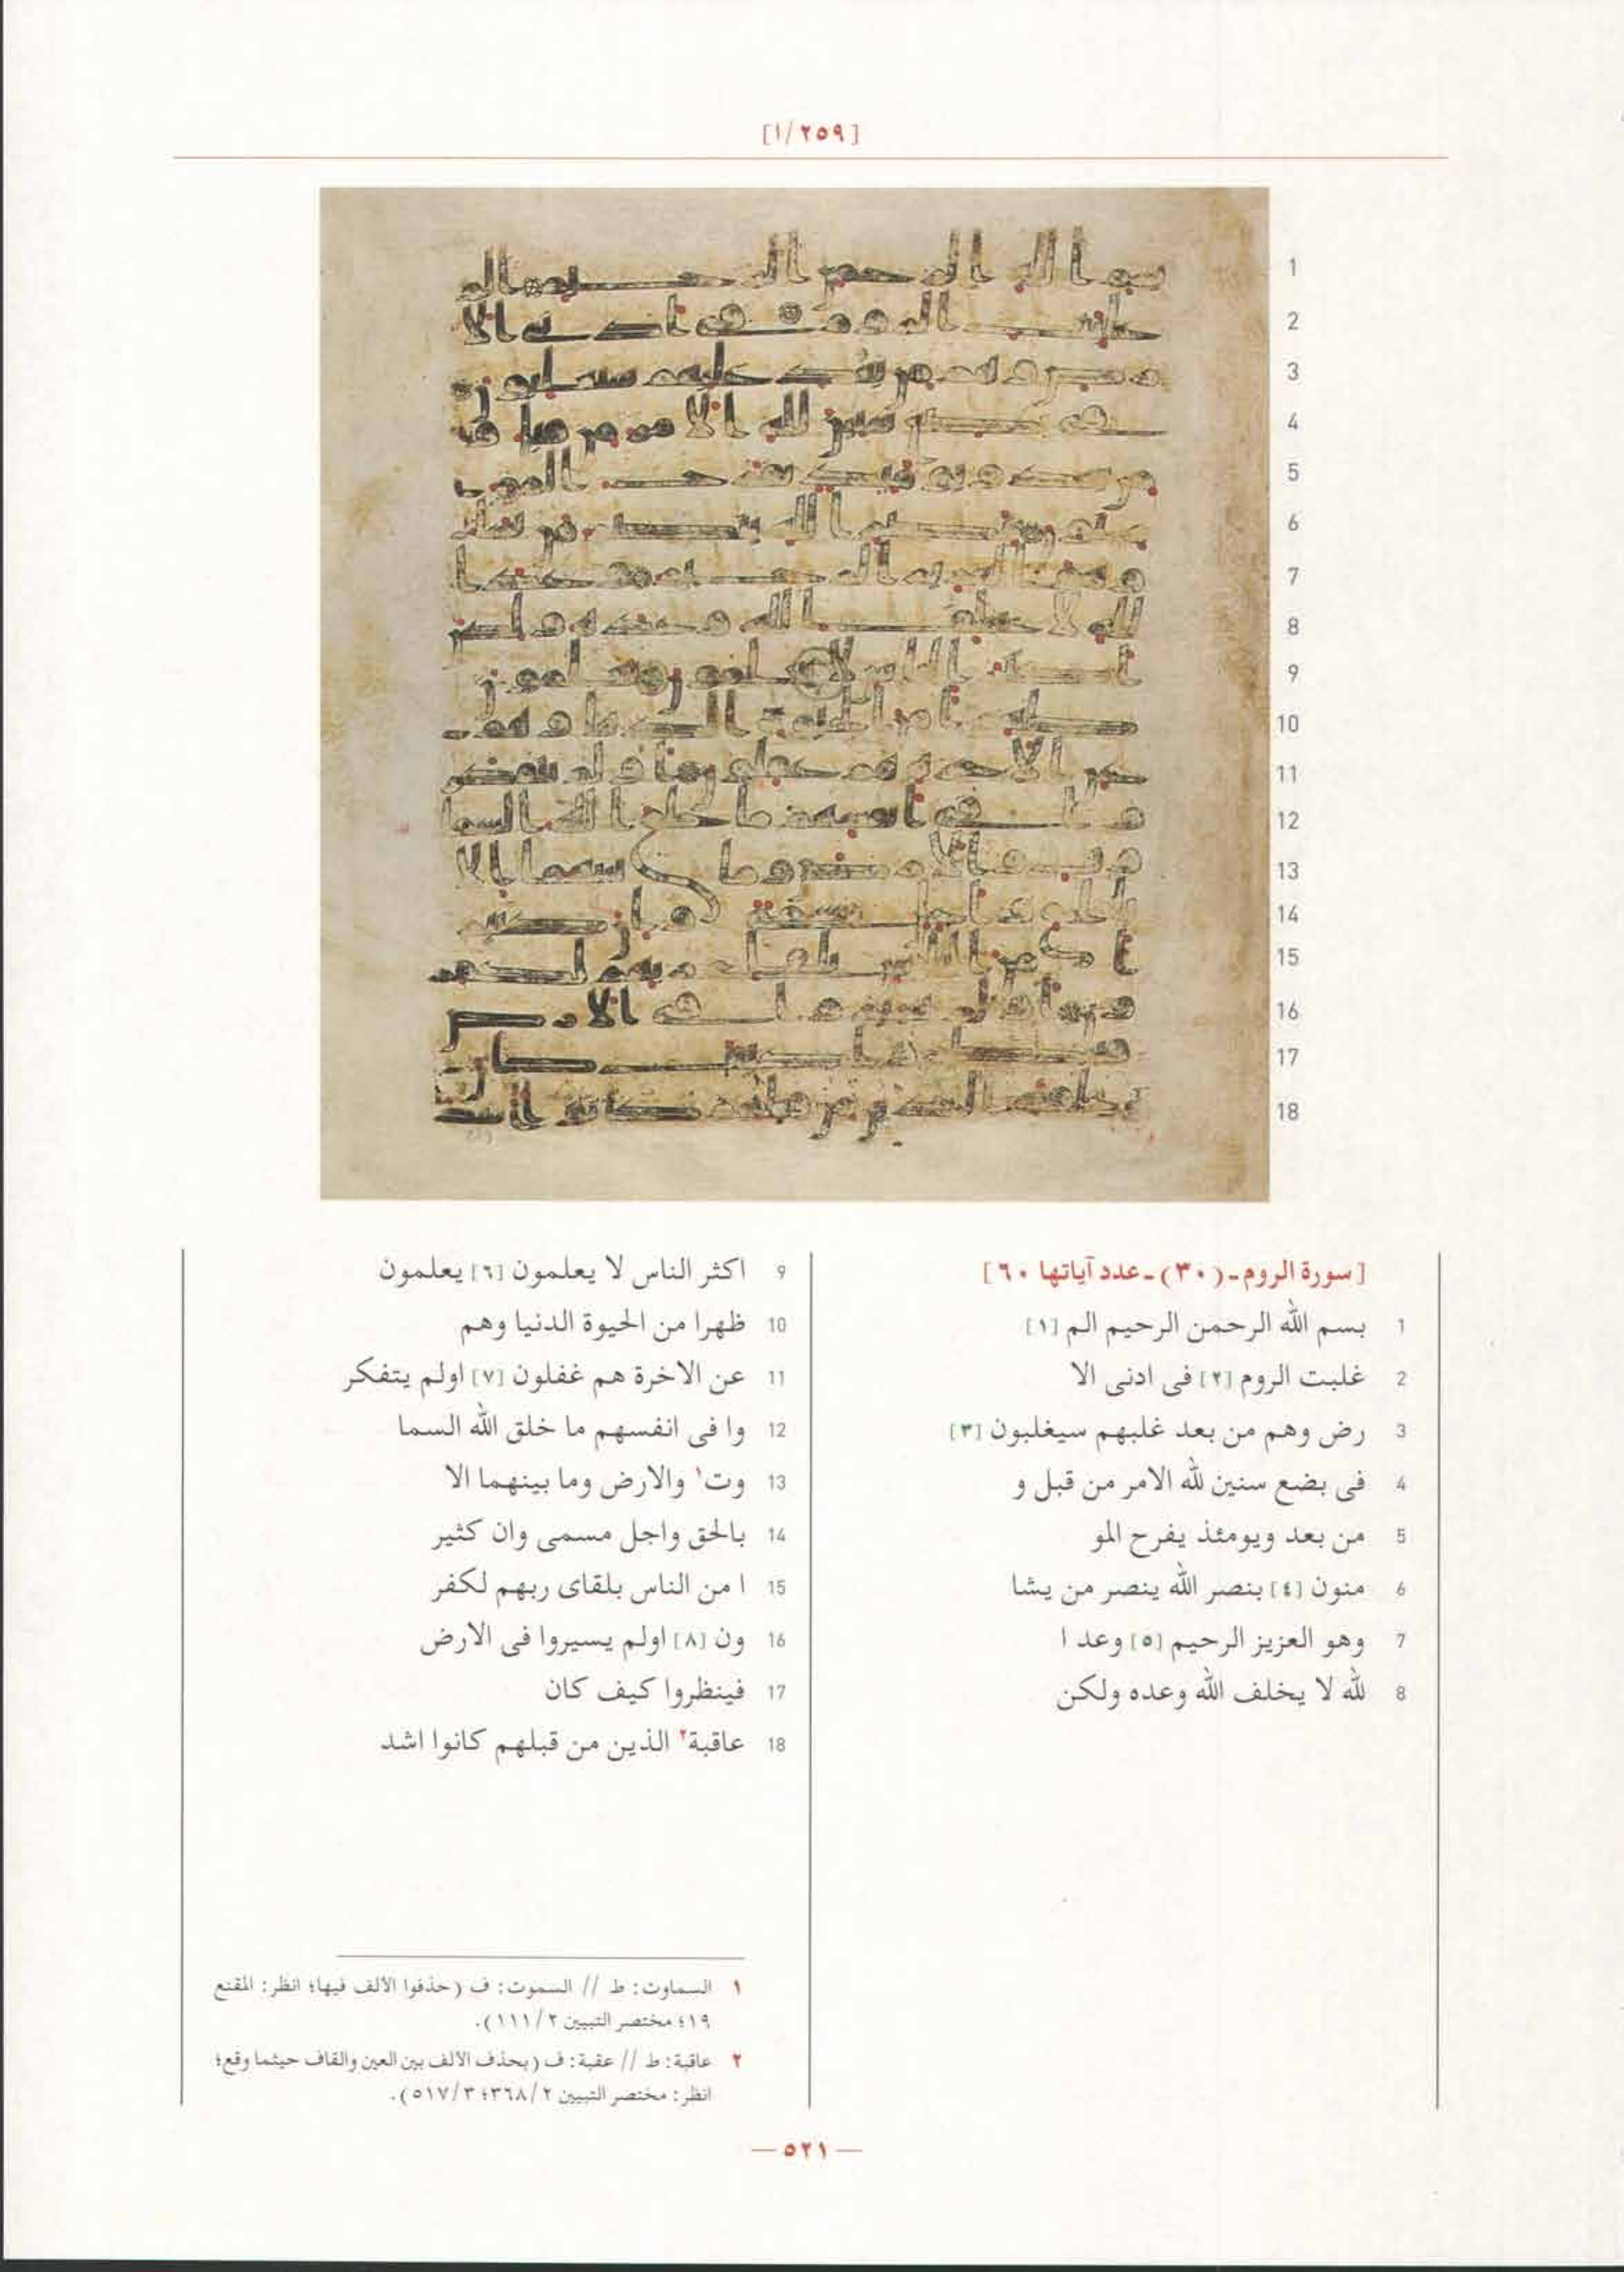 [١/٢٥٩]
1
2
3
4
5
6
7
8
9
10
11
12
13
14
15
16
17
18
[سورة الروم-(٣٠)-عدد آياتها ٦٠]
1 بسم الله الرحمن الرحيم الم [١]
2 غلبت الروم [٢] فى ادنى الا
3 رض وهم من بعد غلبهم سيغلبون [٣]
4 فى بضع سنين لله الامر من قبل و
5 من بعد ويومئذ يفرح المو
6 منون [٤] بنصر الله ينصر من يشا
7 وهو العزيز الرحيم [٥] وعد ا
8 لله لا يخلف الله وعده ولكن
9 اكثر الناس لا يعلمون [٦] يعلمون
10 ظهرا من الحيوة الدنيا وهم
11 عن الاخرة هم غفلون [٧] اولم يتفكر
12 وا فى انفسهم ما خلق الله السما
13 وت١ والارض وما بينهما الا
14 بالحق واجل مسمى وان كثير
15 ا من الناس بلقاى ربهم لكفر
16 ون [٨] اولم يسيروا فى الارض
17 فينظروا كيف كان
18 عاقبة٢ الذين من قبلهم كانوا اشد
١ السماوت: ط // السموت: ف (حذفوا الألف فيها؛ انظر: المقنع
١٩؛ مختصر التبيين ٢/ ١١١).
٢ عاقبة: ط // عقبة: ف (بحذف الألف بين العين والقاف حيثما وقع؛
انظر: مختصر التبيين ٢/ ٣٦٨؛ ٣/ ٥١٧).
— ٥٢١ —